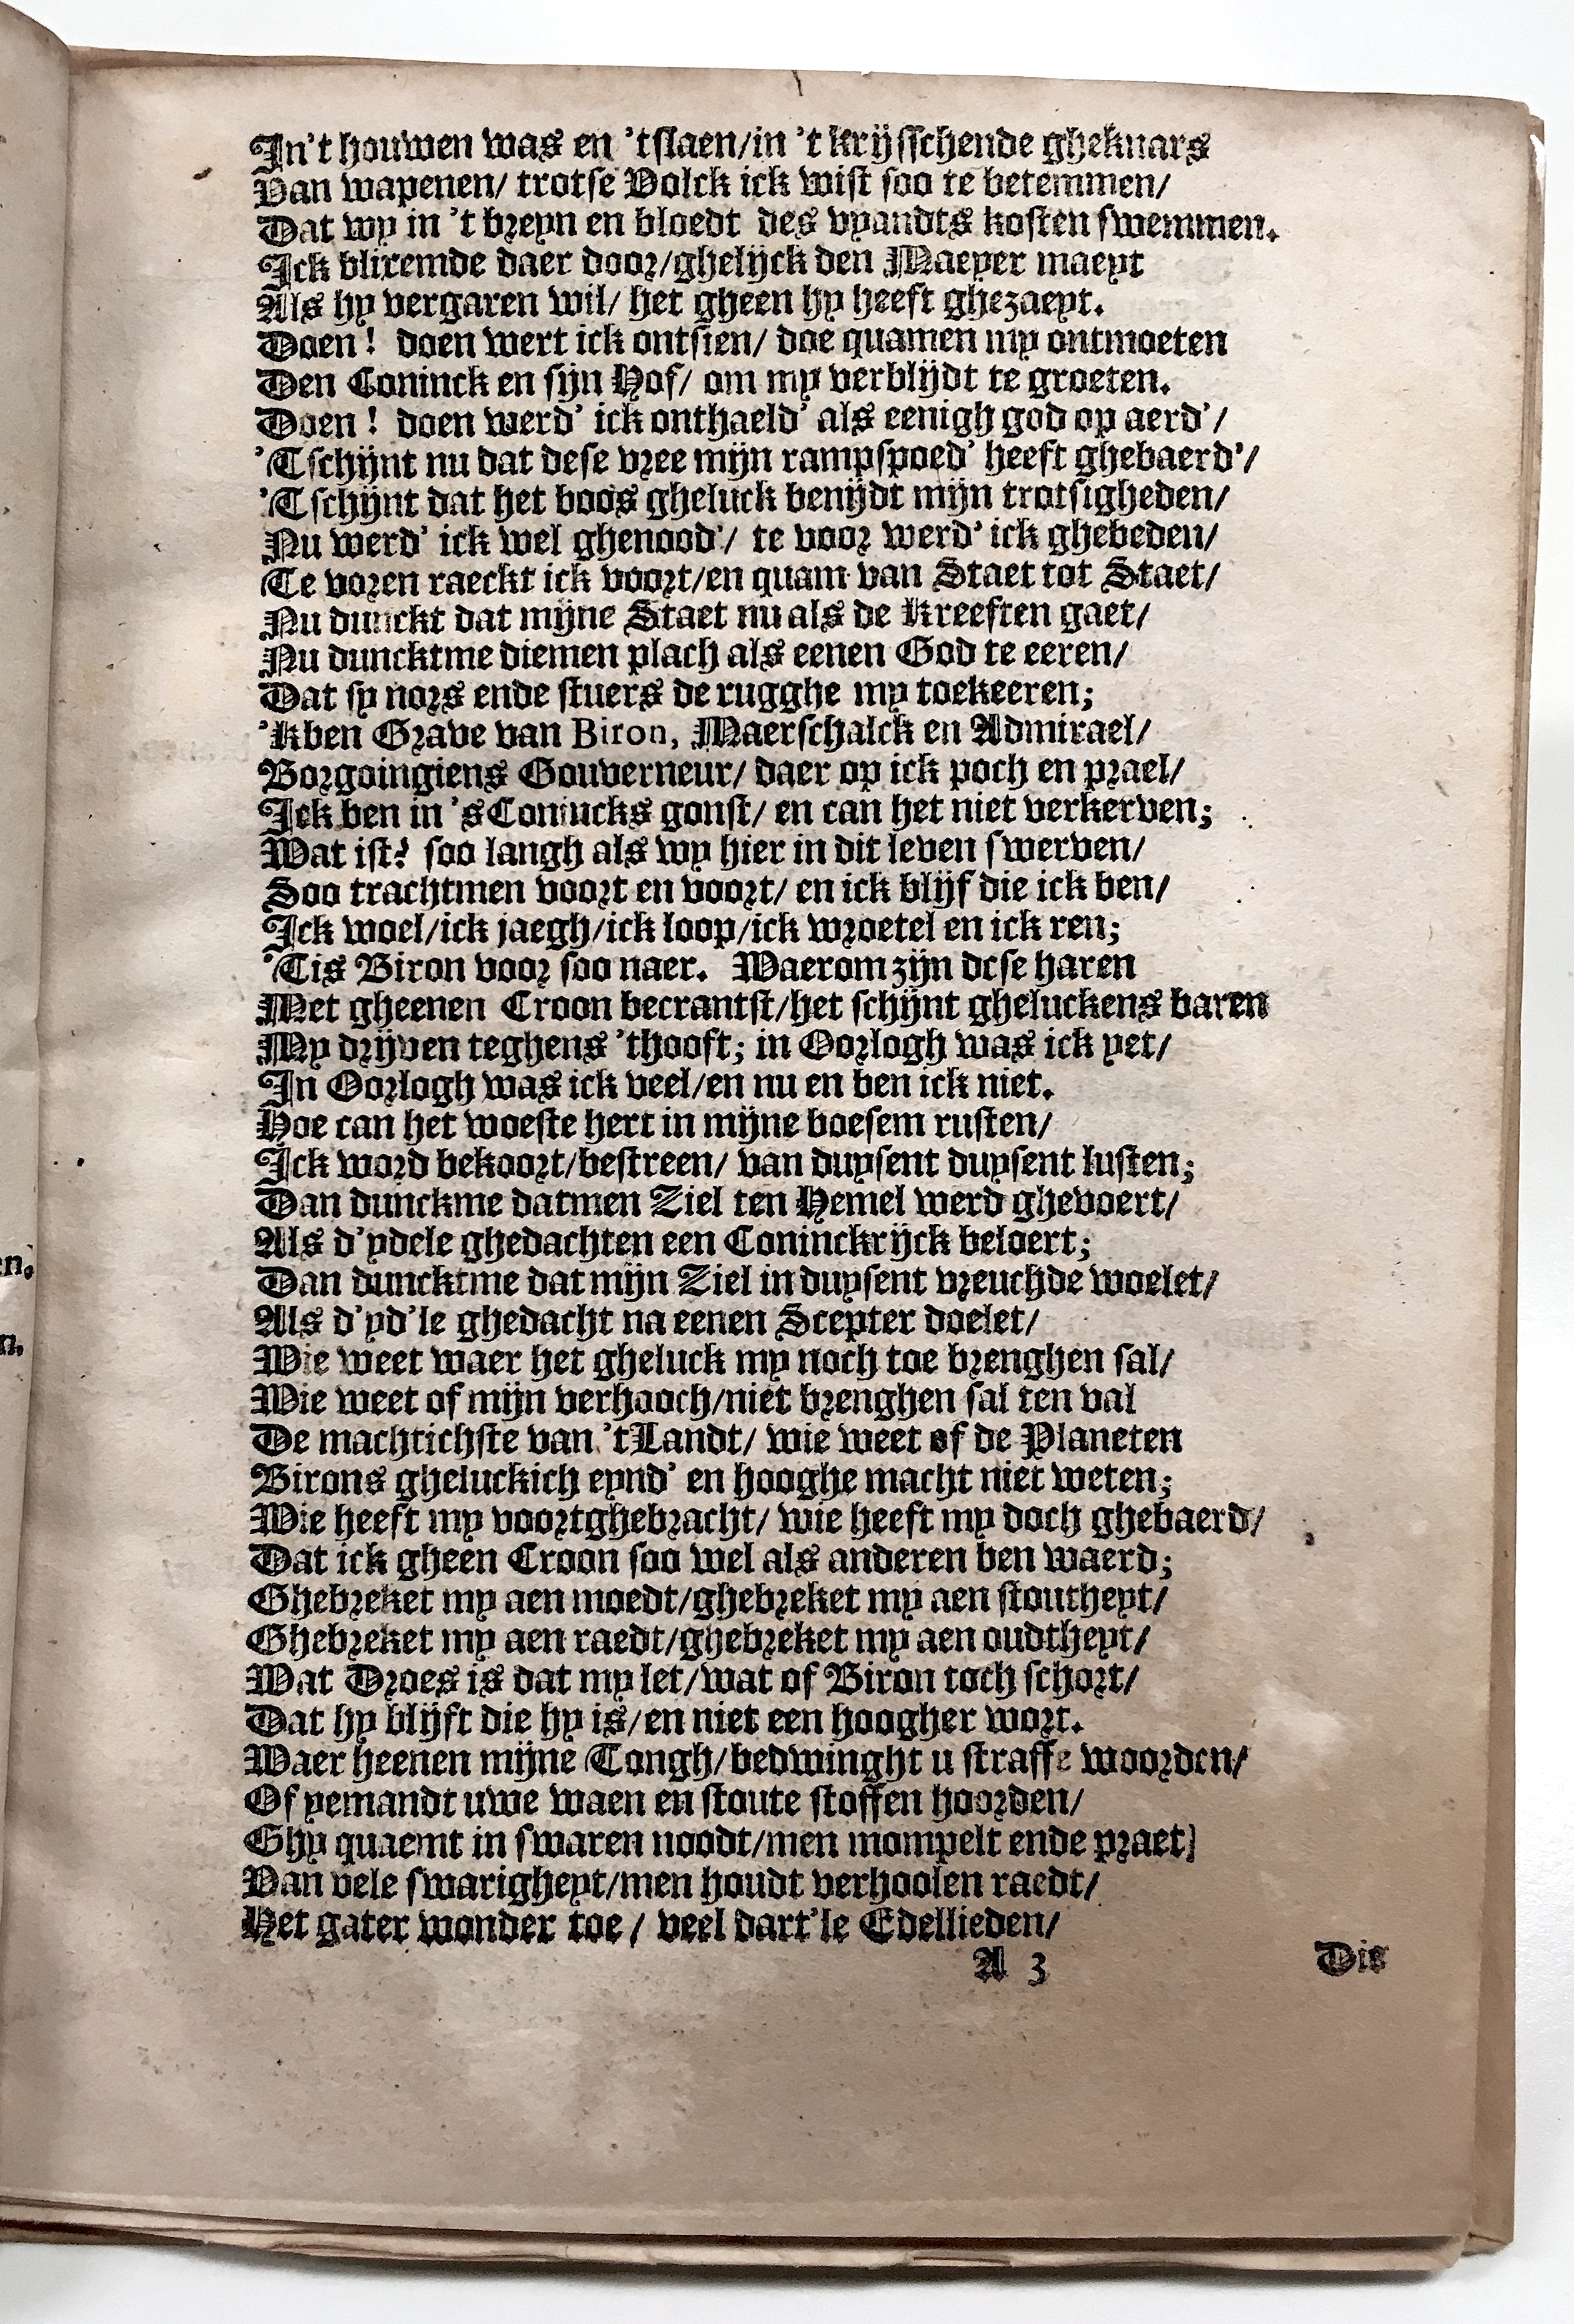 In't houwen was en 'tslaen/in 't krijsschende gheknars
Van wapenen/ trotse Volck ick wist soo te betemmen/
Dat wy in 't breyn en bloedt des vyandts kosten swemmen.
Ick blixemde daer door/ghelijck den Maeyer maeyt
Als hy vergaren wil/ het gheen hy heeft ghezaeyt.
Doen! doen wert ick ontsien/ doe quamen my ontmoeten
Den Coninck en sijn Hof/ om my verblijdt te groeten.
Doen! doen werd' ick onthaeld' als eenigh god op aerd'/
'Tschijnt nu dat dese vree mijn rampspoed' heeft ghebaerd'/
'Tschijnt dat het boos gheluck benijdt mijn trotsigheden/
Nu werd' ick wel ghenood'/ te voor werd' ick ghebeden/
Te voren raeckt ick voort/en quam van Staet tot Staet/
Nu dunckt dat mijne Staet nu als de Kreeften gaet/
Nu duncktme diemen plach als eenen God te eeren/
Dat sy nors ende stuers de rugghe my toekeeren;
'Kben Grave van Biron, Maerschalck en Admirael/
Borgoingiens Gouverneur/ daer op ick poch en prael/
Ick ben in 'sConincks gonst/ en can het niet verkerven;
Wat ist? soo langh als wy hier in dit leven swerven/
Soo trachtmen voort en voort/ en ick blijf die ick ben/
Ick woel/ick jaegh/ick loop/ick wroetel en ick ren;
'Tis Biron voor soo naer. Waerom zijn dese haren
Met gheenen Croon becrantst/het schijnt gheluckens baren
My drijven teghens 'thooft; in Oorlogh was ick yet/
In Oorlogh was ick veel/en nu en ben ick niet.
Hoe can het woeste hert in mijne boesem rusten/
Ick word bekoort/bestreen/ van duysent duysent lusten;
Dan dunckme datmen Ziel ten Hemel werd ghevoert/
Als d'ydele ghedachten een Coninckrijck beloert;
Dan duncktme dat mijn Ziel in duysent vreuchde woelet/
Als d'yd'le ghedacht na eenen Scepter doelet/
Wie weet waer het gheluck my noch toe brenghen sal/
Wie weet of mijn verhooch/niet brenghen sal ten val
De machtichste van 'tLandt/ wie weet of de Planeten
Birons gheluckich eynd' en hooghe macht niet weten;
Wie heeft my voortghebracht/ wie heeft my doch ghebaerd/
Dat ick gheen Croon soo wel als anderen ben waerd;
Ghebreket my aen moedt/ghebreket my aen stoutheyt/
Ghebreket my aen raedt/ghebreket my aen oudtheyt/
Wat Droes is dat my let/wat of Biron toch schort/
Dat hy blijft die hy is/en niet een hoogher wort.
Waer heenen mijne Tongh/bedwinght u straffe woorden/
Of yemandt uwe waen en stoute stoffen hoorden/
Ghy quaemt in swaren noodt/men mompelt ende praet]
Van vele swarigheyt/men houdt verhoolen raedt/
Het gater wonder toe/ veel dart'le Edellieden/
A 3 Die
en.
n.